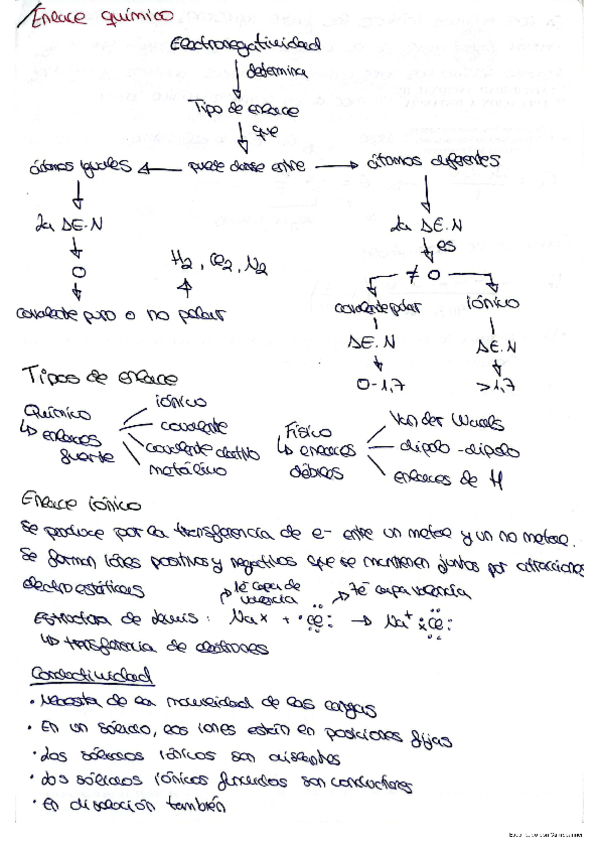 Enlace químico
Electronegatividad
determina
Tipo de enlace
que
átomos iguales ← puede darse entre → átomos diferentes
La ΔE.N
La ΔE.N
es
0
H2, Cl2, N2
≠ 0
covalente puro o no polar
covalente polar
iónico
ΔE.N
ΔE.N
0-1,7
>1,7
Tipos de enlace
Químico
↳ enlaces fuerte
iónico
covalente
covalente dativo
metálico
Físico
↳ enlaces débiles
Van der Waals
dipolo-dipolo
enlaces de H
Enlace iónico
Se produce por la transferencia de e- entre un metal y un no metal.
Se forman iones positivos y negativos que se mantienen juntos por atracciones
electroestáticas
1é capa de valencia
7é capa valencia
Estructura de Lewis: Na x + ·Cl: → Na+ :Cl:
↳ transferencia de electrones
Conductividad
· Necesita de la movilidad de las cargas
· En un sólido, los iones están en posiciones fijas
· Los sólidos iónicos son aislantes
· Los sólidos iónicos fundidos son conductores
· En disolución también